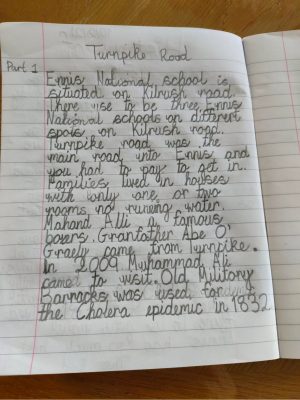 Turnpike Road
Part 1
Ennis National school is
situated on Kilrush road.
There use to be three Ennis
National schools on different
spots on Kilrush road.
Turnpike road was the
main road into Ennis and
you had to pay to get in.
Families lived in houses
with only one or two
rooms no runing water.
Mahand Alli a famous
boxers. Grantfather Abe O'
Graely came from turnpike.
In 2009 Muhammad Ali
came to visit. Old Military
Barracks was used for
the Cholera epidemic in 1832